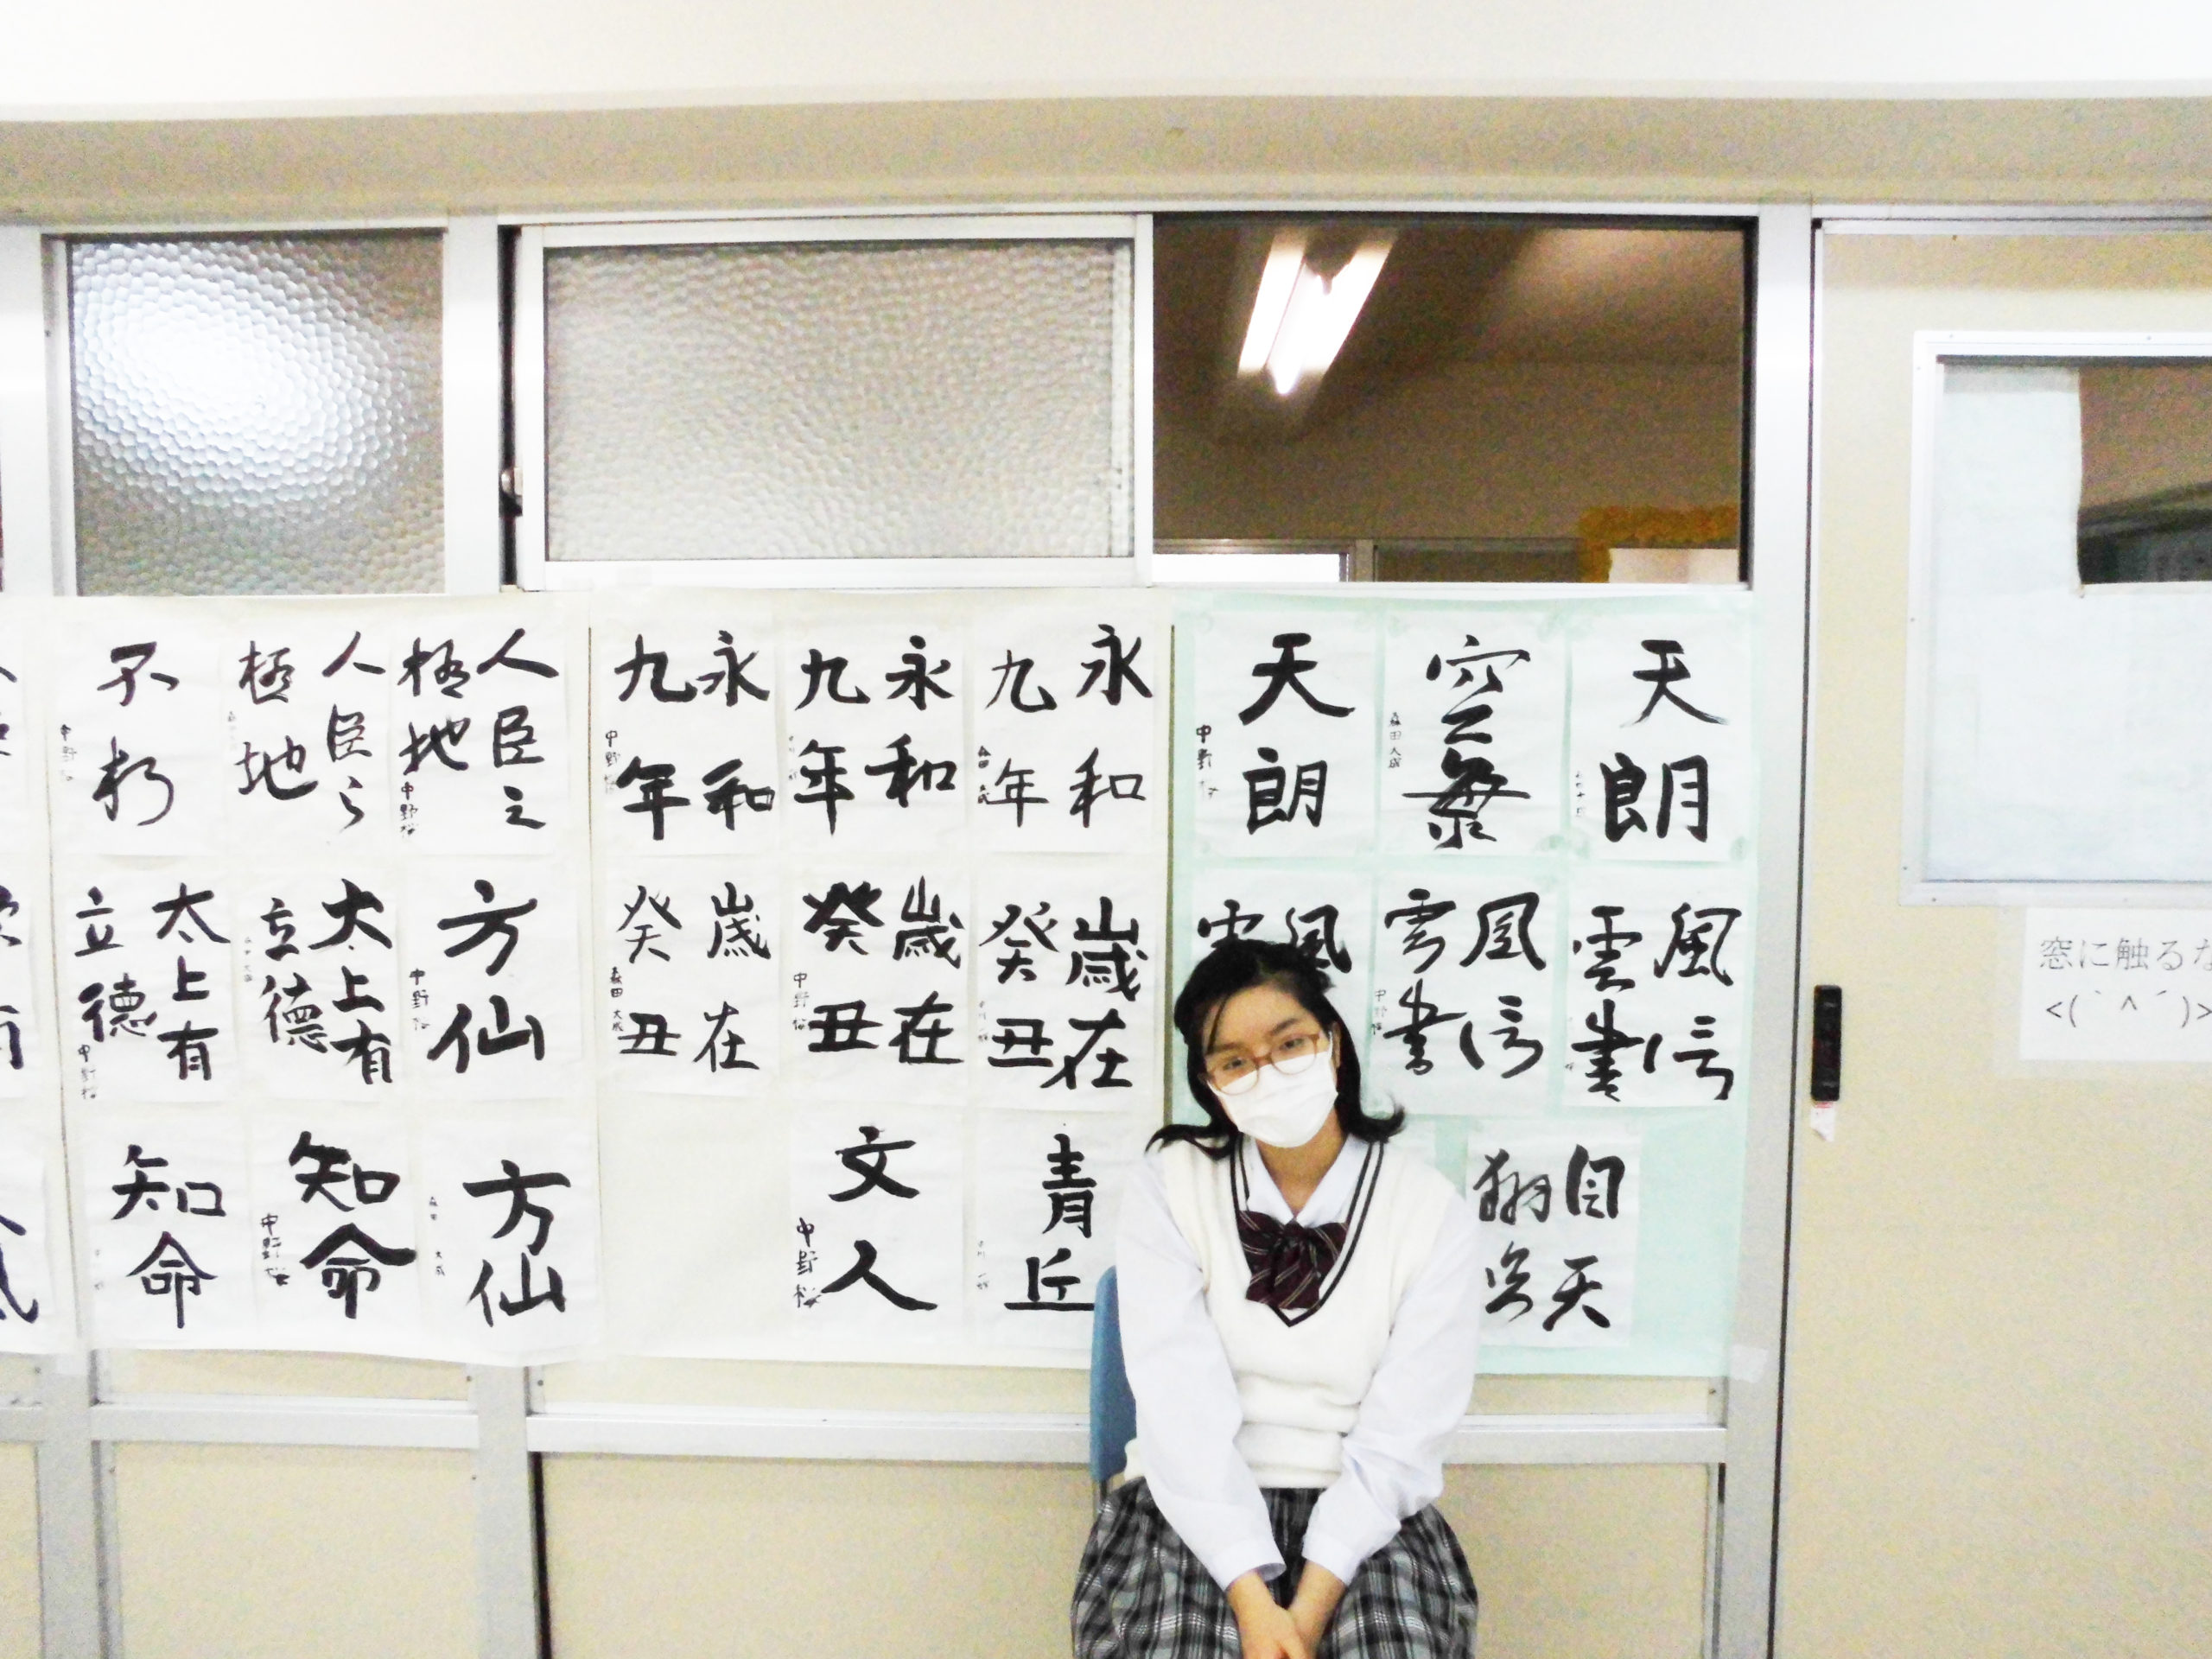 不朽
中野桜
人臣之
極地
人臣之
極地
中野桜
永和
九年
中野桜
永和
九年
永和
九年
森田大成
天朗
中野桜
空無
森田大成
天朗
太上有
立德
中野桜
太上有
立德
森田大成
方仙
中野桜
歳在
癸丑
森田大成
歳在
癸丑
中野桜
歳在
癸丑
風
雲
風信
雲書
中野桜
風信
雲書
知命
知命
中野桜
方仙
森田大成
文人
中野桜
青丘
自天
翔
窓に触るな
<(｀^´)>